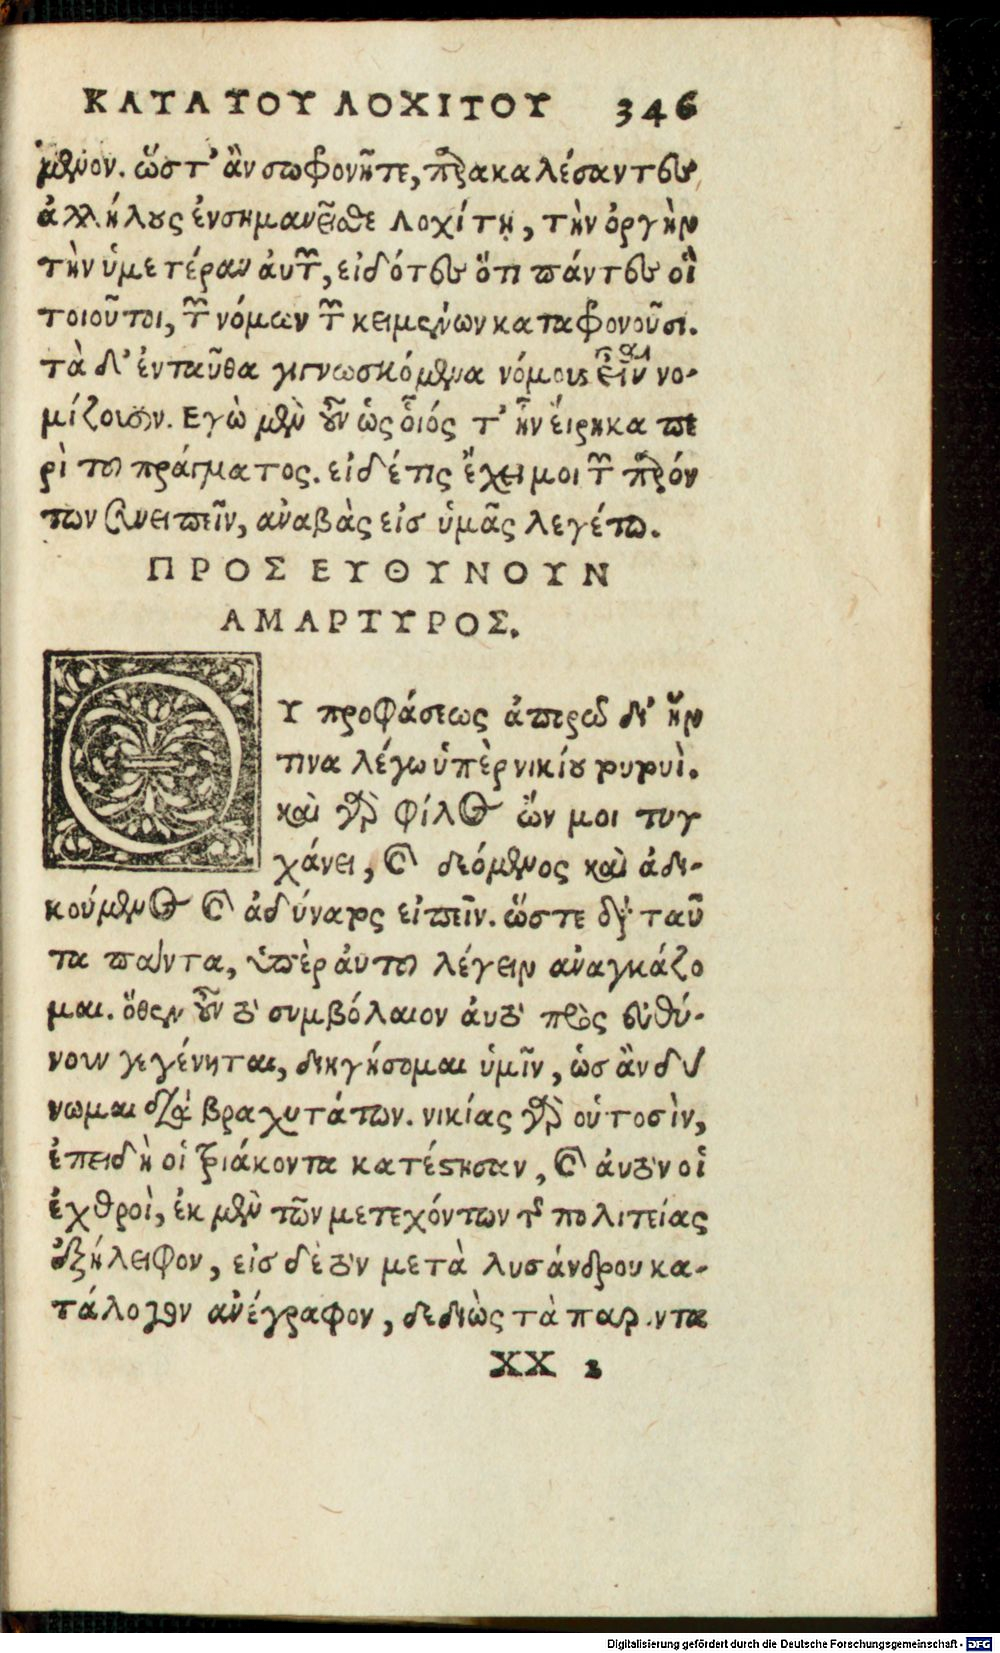 ΚΑΤΑ ΤΟΥ ΛΟΧΙΤΟΥ 346
μενον. ὥστ' ἂν σωφρονῆτε, παρακαλέσαντες
ἀλλήλους ἐνσημανεῖσθε Λοχίτῃ, τὴν ὀργὴν
τὴν ὑμετέραν ἀυτῶν, εἰδότες ὅτι πάντες οἱ
τοιοῦτοι, τῶν νόμων τῶν κειμένων καταφρονοῦσι.
τὰ δ' ἐνταῦθα γιγνωσκόμενα νόμους εἶναι νο-
μίζουσιν. Εγὼ μὲν οὖν ὡς οἷός τ' ἦν ἔιρηκα πε
ρὶ του πράγματος. εἰ δέ τις ἔχει μοι τῶν παρόν
των συνειπεῖν, αναβὰς εἰσ ὑμᾶς λεγέτω.
ΠΡΟΣ ΕΥΘΥΝΟΥΝ
ΑΜΑΡΤΥΡΟΣ.
ΟΥ προφάσεως ἀπορῶ δι' ἥν
τινα λέγω ὑπὲρ νικίου τουτουὶ.
καὶ γὰρ φίλος ὤν μοι τυγ
χάνει, καὶ δεόμενος καὶ ἀδι-
κούμενος καὶ ἀδύνατος εἰπεῖν. ὥστε διὰ ταῦ
τα πάντα, ὑπὲρ ἀυτου λέγειν αναγκάζο
μαι. ὅθεν οὖν τὸ συμβόλαιον ἀυτῷ πρὸς εὐθύ-
νουν γεγένηται, διηγήσομαι ὑμῖν, ὡσ ἂν δύ
νωμαι διὰ βραχυτάτων. νικίας γὰρ οὑτοσὶν,
ἐπειδὴ οἱ τριάκοντα κατέστησαν, καὶ ἀυτὸν οἱ
ἐχθροὶ, ἐκ μὲν τῶν μετεχόντων τῆς πολιτείας
ἐξήλειφον, εἰσ δὲ τὸν μετὰ λυσάνδρου κα-
τάλογον ανέγραφον, δεδιὼς τὰ παρόντα
XX 2
Digitalisierung gefördert durch die Deutsche Forschungsgemeinschaft - DFG